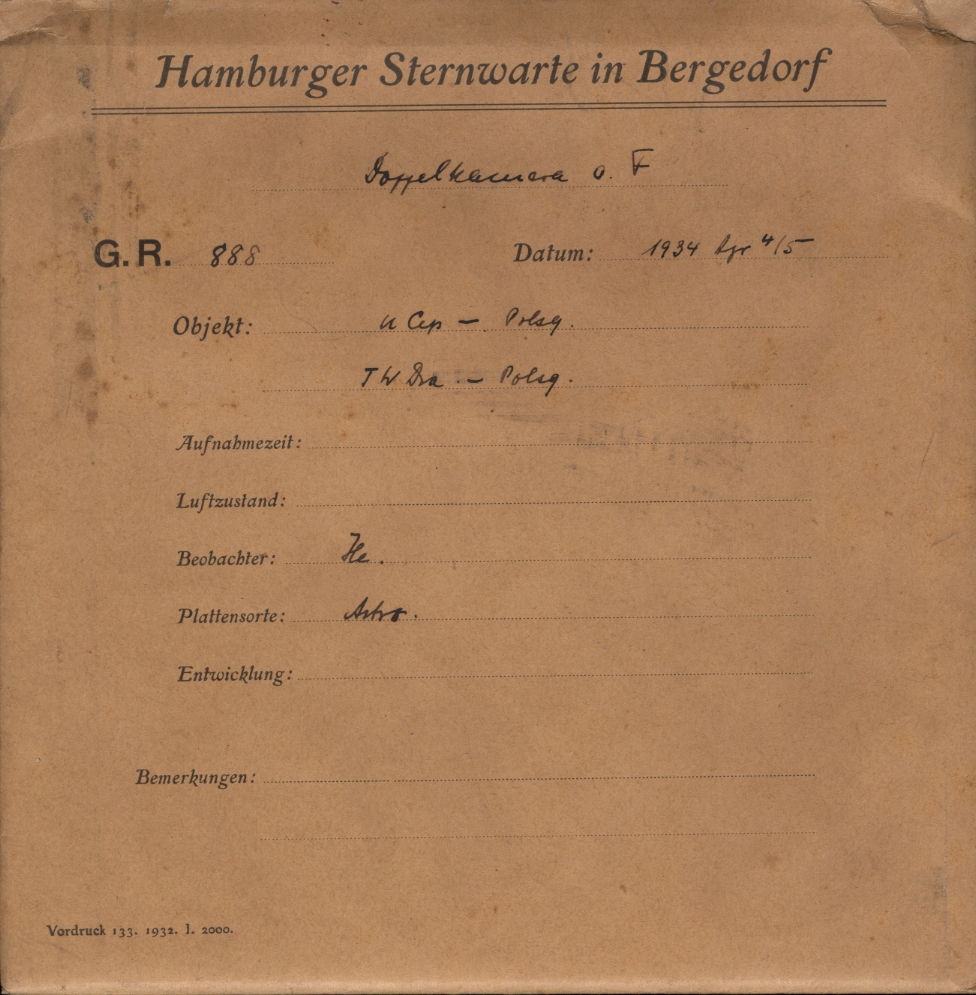 Hamburger Sternwarte in Bergedorf
Doppelkamera o. F
G.R. 888 Datum: 1934 Apr 4/5
Objekt: U Cep — Polsq.
TW Dra — Polsq.
Aufnahmezeit:
Luftzustand:
Beobachter: He.
Plattensorte: Astro.
Entwicklung:
Bemerkungen:
Vordruck 133. 1932. I. 2000.